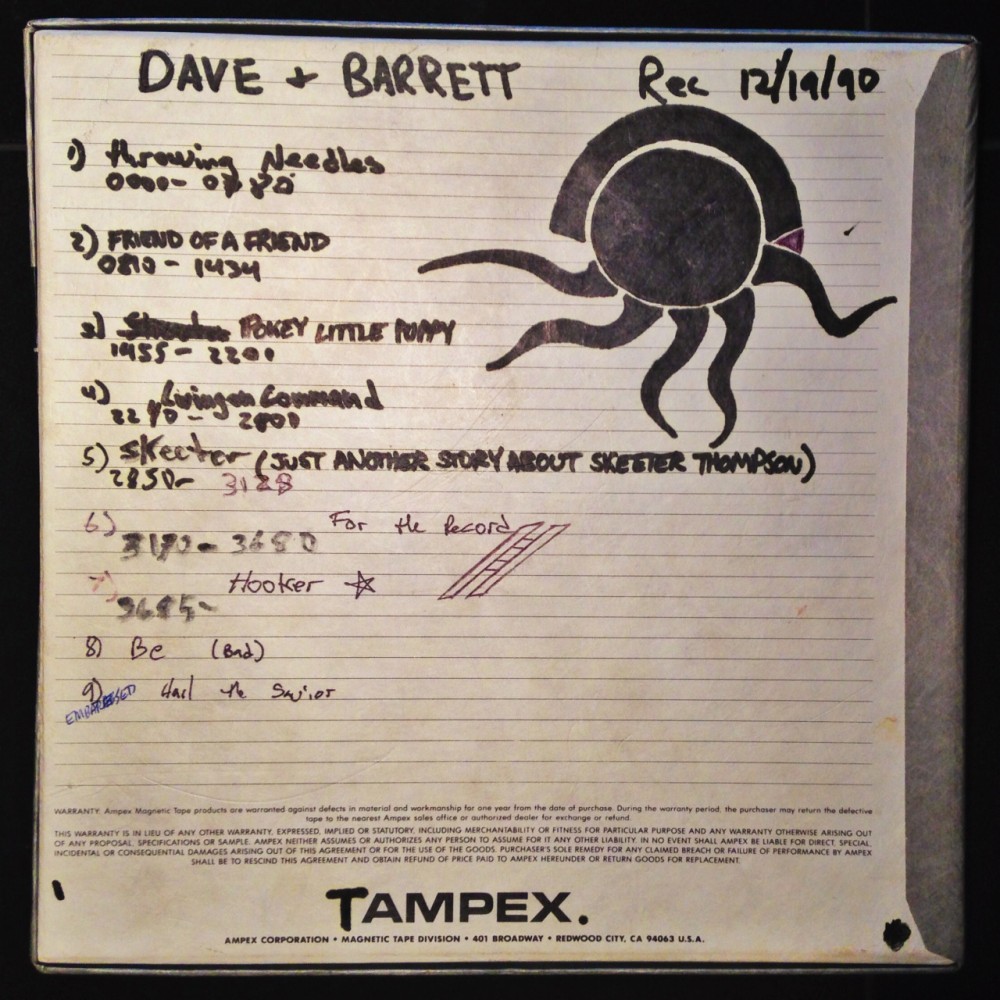 DAVE + BARRETT Rec 12/19/90
1) throwing Needles
2) FRIEND OF A FRIEND
0810 - 1434
3) POKEY LITTLE PUPPY
1455 - 2201
4) Living on Command
2800
5) Skeeter (JUST ANOTHER STORY ABOUT SKEETER THOMPSON)
2850- 3128
6) For the Record
3680
7) Hooker
8) Be (Bad)
9) Hail the Savior
EMBARRASSED
WARRANTY: Ampex Magnetic Tape products are warranted against defects in material and workmanship for one year from the date of purchase. During the warranty period, the purchaser may return the defective
tape to the nearest Ampex sales office or authorized dealer for exchange or refund.
THIS WARRANTY IS IN LIEU OF ANY OTHER WARRANTY, EXPRESSED, IMPLIED OR STATUTORY, INCLUDING MERCHANTABILITY OR FITNESS FOR PARTICULAR PURPOSE AND ANY WARRANTY OTHERWISE ARISING OUT
OF ANY PROPOSAL, SPECIFICATIONS OR SAMPLE. AMPEX NEITHER ASSUMES OR AUTHORIZES ANY PERSON TO ASSUME FOR IT ANY OTHER LIABILITY. IN NO EVENT SHALL AMPEX BE LIABLE FOR DIRECT, SPECIAL,
INCIDENTAL OR CONSEQUENTIAL DAMAGES ARISING OUT OF THIS AGREEMENT OR FOR THE USE OF THE GOODS. PURCHASER'S SOLE REMEDY FOR ANY CLAIMED BREACH OR FAILURE OF PERFORMANCE BY AMPEX
SHALL BE TO RESCIND THIS AGREEMENT AND OBTAIN REFUND OF PRICE PAID TO AMPEX HEREUNDER OR RETURN GOODS FOR REPLACEMENT.
TAMPEX.
AMPEX CORPORATION • MAGNETIC TAPE DIVISION • 401 BROADWAY • REDWOOD CITY, CA 94063 U.S.A.